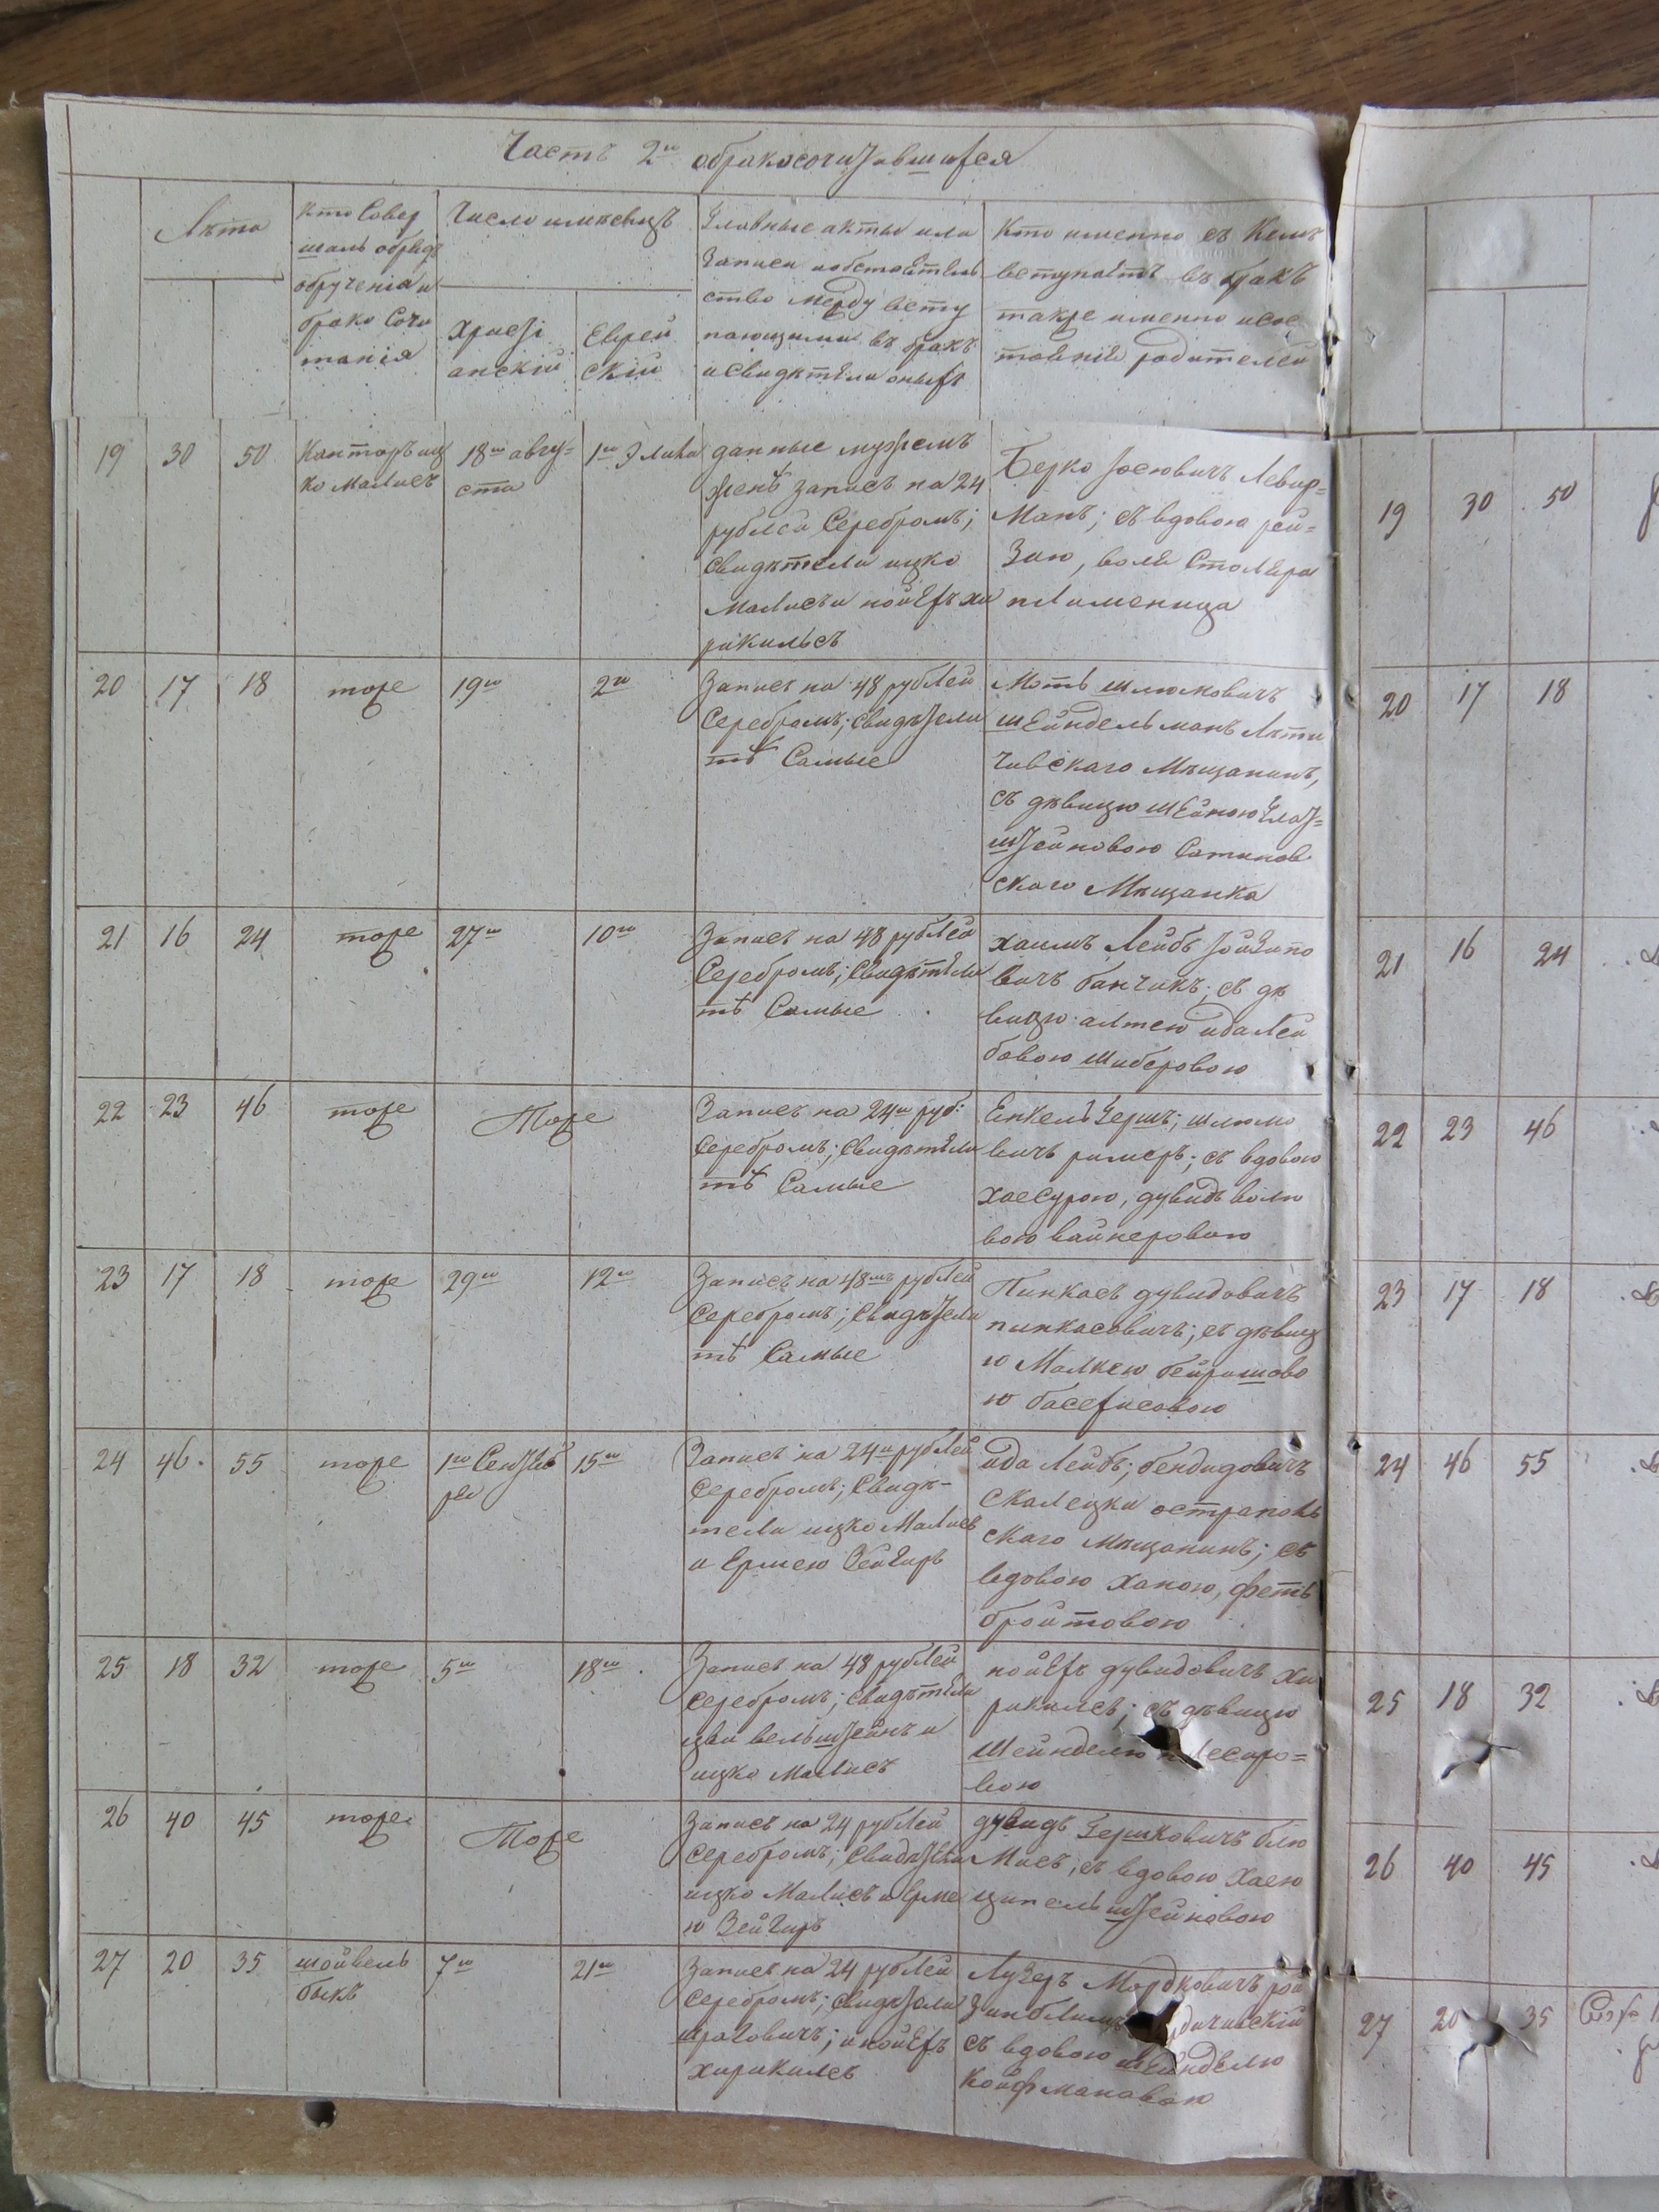 Часть 2я обракосочитавшихся
Лѣта
Кто Совер
шалъ обрядъ
обрученія и
брако Сочи
танія
Число и мѣсяцъ
Христі
анскій
Еврей
скій
Главные акты или
Записи и обстоятель
ство между всту
пающими въ бракъ
и свидѣтели оныхъ
Кто именно съ Кемъ
вступаетъ въ бракъ
также именно и сос
товніе родителей
19 30 50 Канторъ иц
ко Малисъ
18го авгу=
ста
1го Элила
данные мужемъ
женѣ запись на 24
рублей Серебромъ;
Свидѣтели ицко
Малисъ и нойехъ хи
рикильсъ
Берко Іосіовичъ Левир=
Манъ; съ вдовою рей=
Зию, воля Столяра
племеница
20 17 18 тоже 19го 2го
Запись на 48 рублей
Серебромъ; Свидѣтели
тѣ Самые
Моть шлюмовичъ
шейндельманъ Лѣти
чивскаго Мѣщанинъ,
съ дѣвицю шейною Глаз=
штейновою Сатанов
скаго Мѣщанка
21 16 24 тоже 27го 10го
Запись на 48 рублей
Серебромъ; Свидѣтели
тѣ Самые
хаимъ Лейбъ
вичъ банчикъ; съ дѣ
вицю алтею ида Лей
бовою шиберовою
22 23 46 тоже Тоже
Запись на 24и руб:
Серебромъ; Свидѣтели
тѣ Самые
Енкель Гершъ; шлюмо
вичъ римеръ; съ вдовою
Хаесурою, дувидъ волю
вою вайнеровою
23 17 18 тоже 29го 12го
Запись на 48мъ рублей
Серебромъ; Свидѣтели
тѣ Самые
Пинкасъ дувидовичъ
пинкасовичъ; съ дѣвиц
ю Малкею бейришово
ю басехисовою
24 46 55 тоже 1го Сентяб
ря
15го
Запись на 24и рублей
Серебромъ; Свидѣ-
тели ицко Малисъ
и Ермею Зейгиръ
ида Лейбъ; бендидовичъ
Скалецки острополь
скаго мѣщанинъ; съ
вдовою Ханою, феть
бройтовою
25 18 32 тоже 5го 18го
Запись на 48 рублей
Серебромъ; Свидѣтели
цви вельштейнъ и
ицко Малисъ
нойехъ дувидовичъ хи
рикилсъ; съ дѣвицю
Шейнделю
вою
26 40 45 тоже Тоже
Запись на 24 рублей
Серебромъ; Свидѣтели
ицко Малисъ и Ерме
ю Зейгиръ
дувидъ Гершковичъ блю
Мисъ, съ вдовою Хаею
ципельштейновою
27 20 35 шойвель
быкъ
7го 21го
Запись на 24 рублей
Серебромъ; Свидѣтели
и нойехъ
хирикилсъ
Лузеръ Мордковичъ рой
зинблимъ
съ вдовою шейнделю
Койфмановою
19 30 50
20 17 18
21 16 24
22 23 46
23 17 18
24 46 55
25 18 32
26 40 45
27 20 35